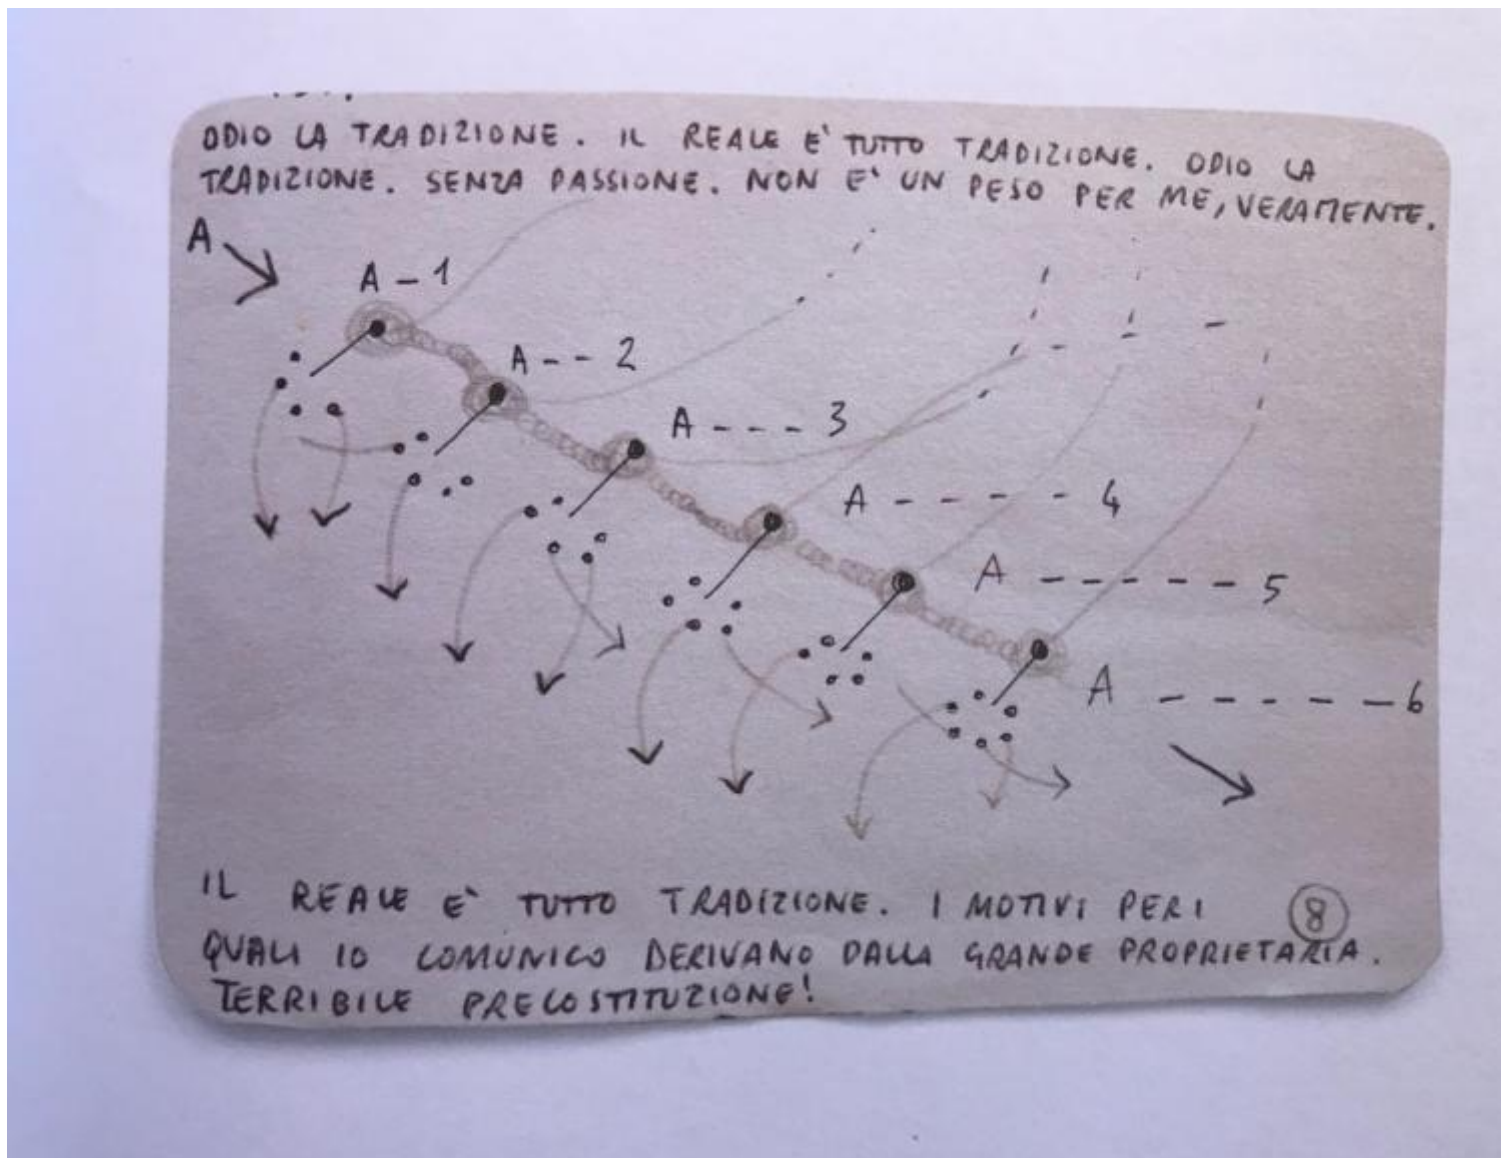 ODIO LA TRADIZIONE. IL REALE E' TUTTO TRADIZIONE. ODIO LA
TRADIZIONE. SENZA PASSIONE. NON E' UN PESO PER ME, VERAMENTE.
A
A - 1
A - - 2
A - - - 3
A - - - - 4
A - - - - - 5
A - - - - - 6
IL REALE E' TUTTO TRADIZIONE. I MOTIVI PER I 8
QUALI IO COMUNICO DERIVANO DALLA GRANDE PROPRIETARIA.
TERRIBILE PRECOSTITUZIONE!